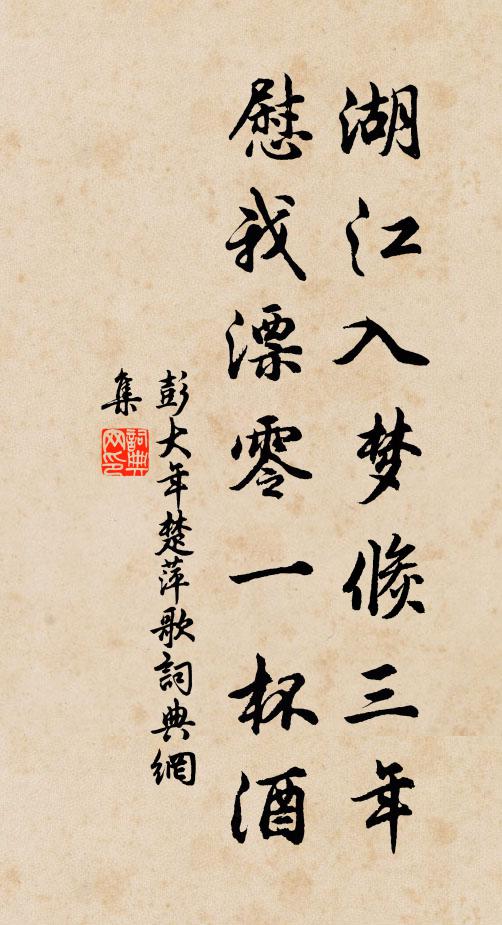 湖江入梦倐三年
慰我漂零一杯酒
彭大年楚萍歌詞典網
集
詞典
网印